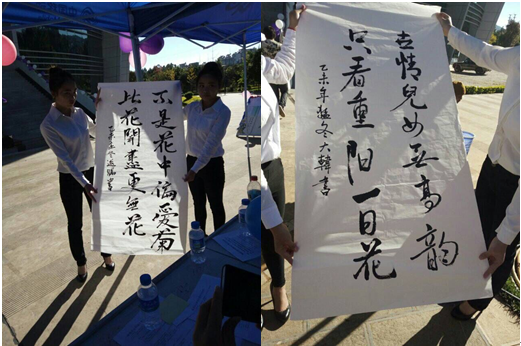 不是花中偏愛菊
此花開盡更無花
世情兒女无高韻
只看重阳一日花
乙未年猛冬大韓書